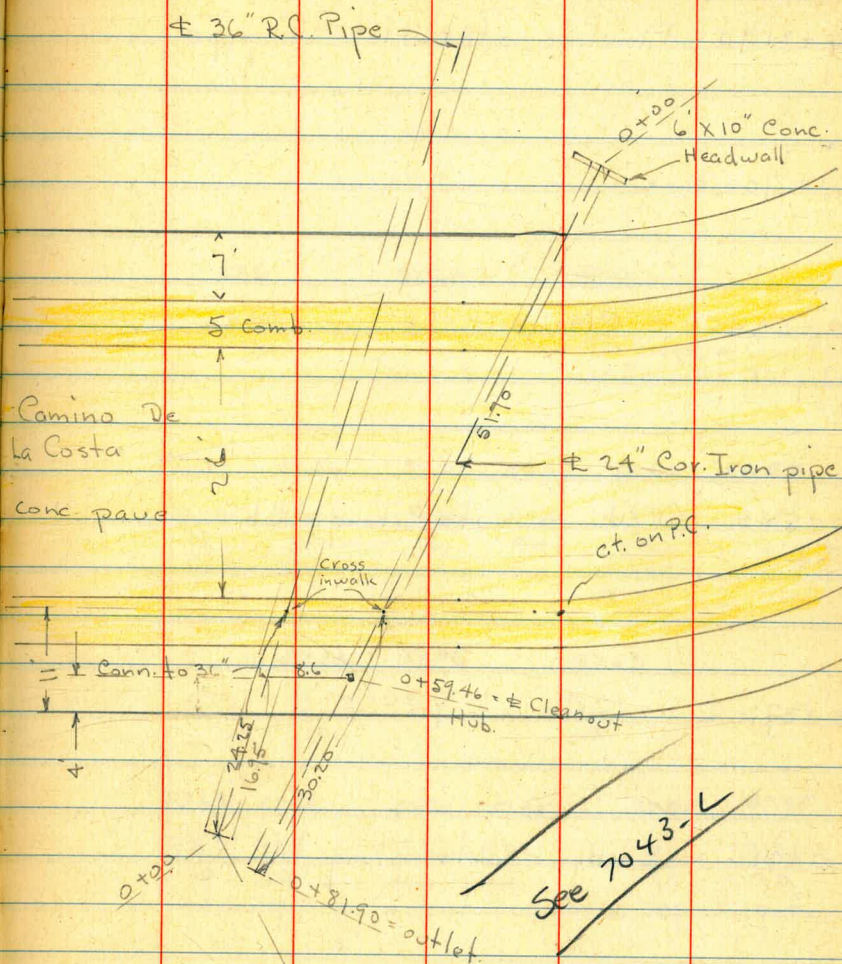 ℄ 36" R.C. Pipe
0+00
6' X 10" Conc.
Headwall
7'
5' Comb.
51.70
Camino De
La Costa
conc. pave
26'
℄ 24" Cor. Iron pipe
c.t. on P.C.
Cross
in walk
11'
Conn. to 36"
8.6
0+59.46 = ℄ Cleanout
Hub.
4'
24.25
16.95
30.20
0+00
0+81.90 = outlet
See 7043-L